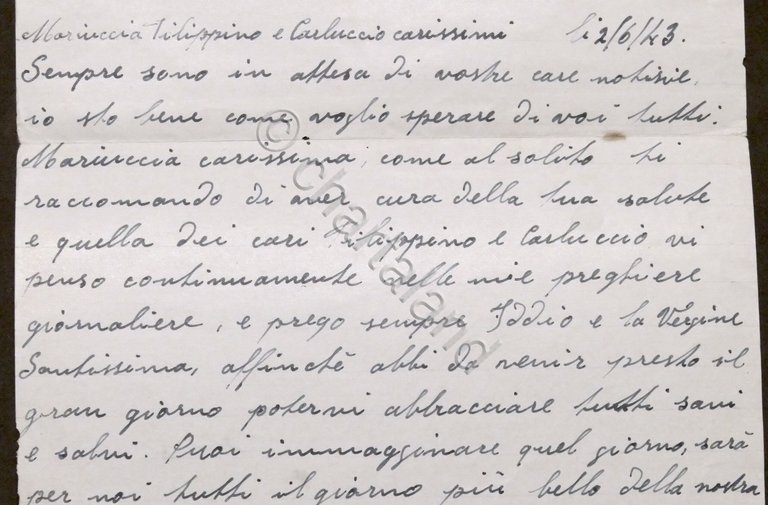 Mariuccia Filippino e Carluccio carissimi li 2/6/43.
Sempre sono in attesa di vostre care notisie,
io sto bene come voglio sperare di voi tutti.
Mariuccia carissima, come al solito ti
raccomando di aver cura della tua salute
e quella dei cari Filippino e Carluccio vi
penso continuamente nelle mie preghiere
giornaliere, e prego sempre Iddio e la Vergine
Santissima, affinchè abbi da venir presto il
gran giorno potervi abbracciare tutti sani
e salvi. Puoi immagginare quel giorno, sarà
per noi tutti il giorno più bello della nostra
© chartaland